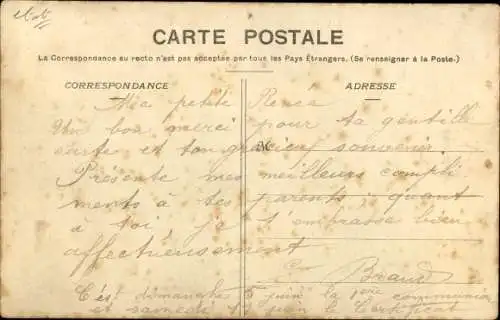 CARTE POSTALE
La Correspondance au recto n'est pas acceptée par tous les Pays Étrangers. (Se renseigner à la Poste.)
CORRESPONDANCE
ADRESSE
Ma petite Renea
Un bon merci pour ta gentille
carte et ton gracieux souvenir.
M
Présente mes meilleurs compli
ments à tes parents, quant
à toi, je t'embrasse bien
affectueusement
Braud
C'est dimanche 5 juin la 1ère communion
et samedi le Certificat